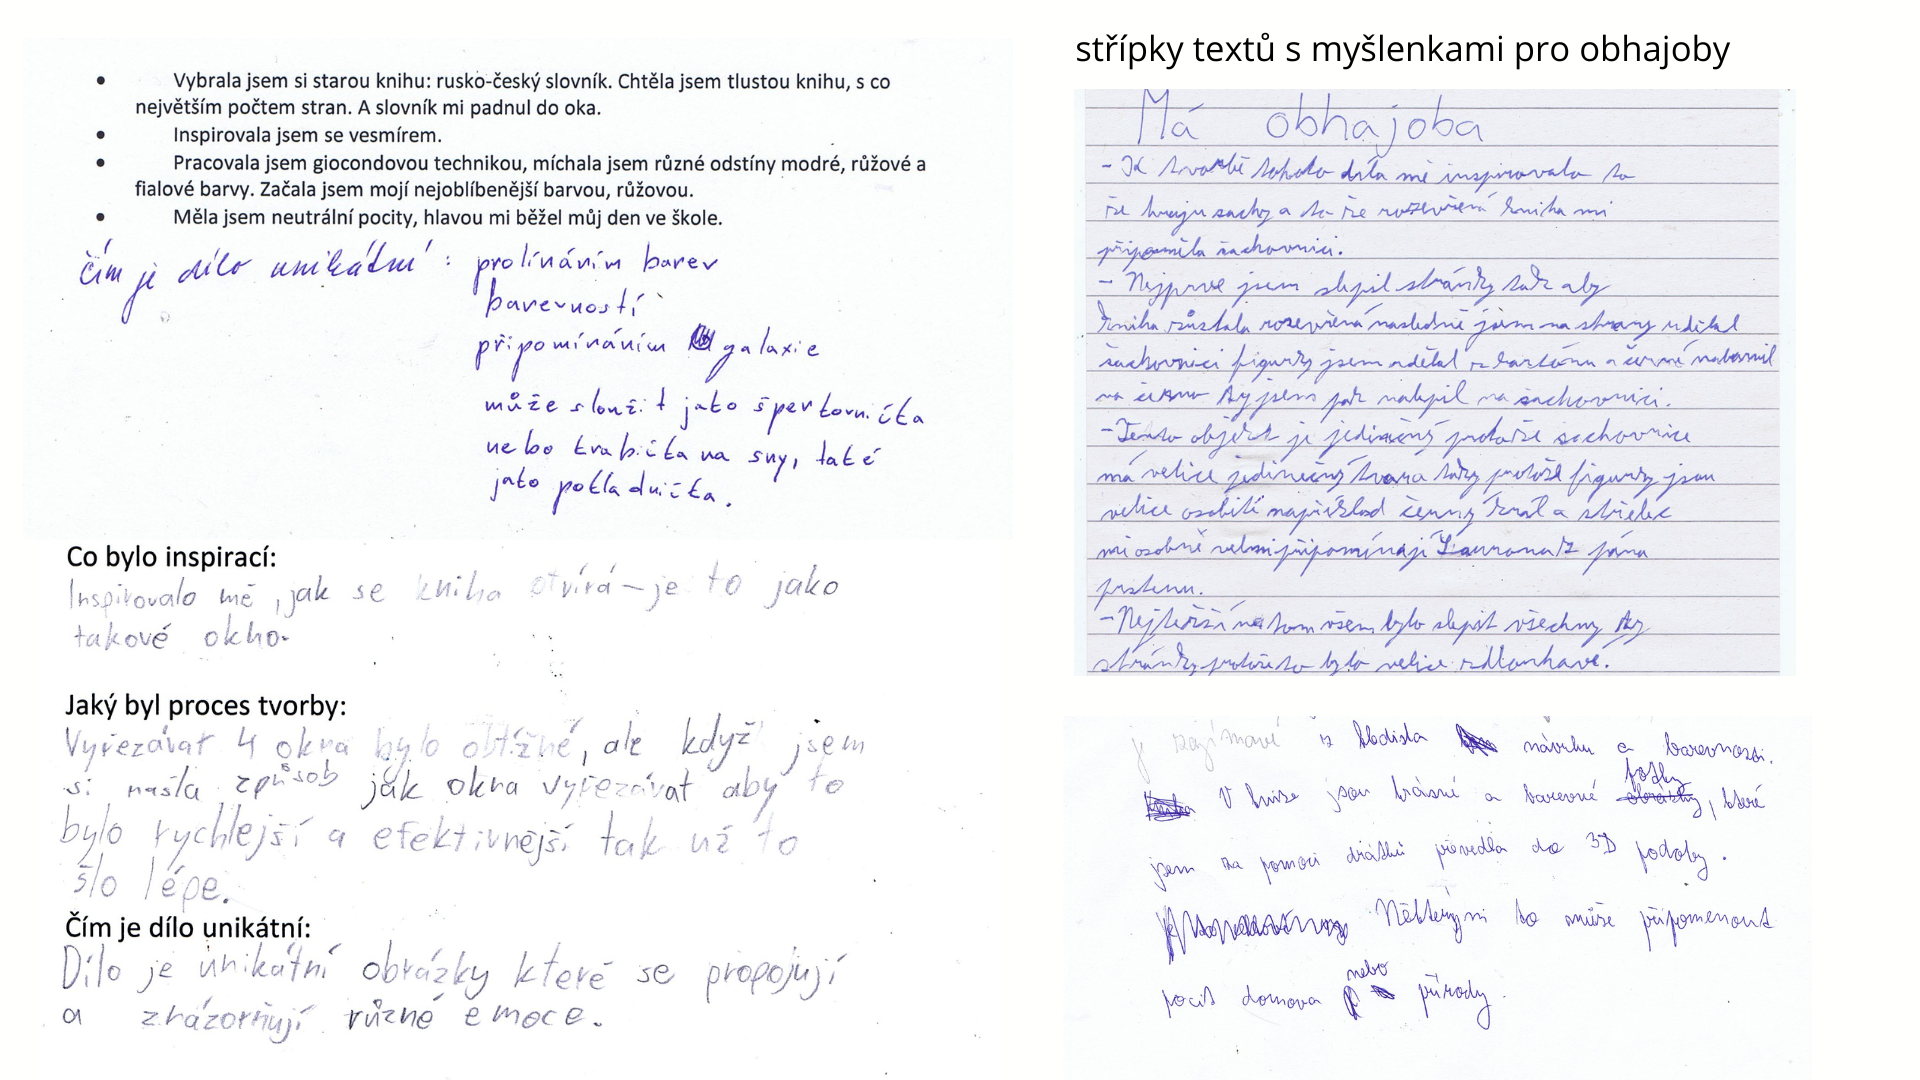 střípky textů s myšlenkami pro obhajoby
• Vybrala jsem si starou knihu: rusko-český slovník. Chtěla jsem tlustou knihu, s co
největším počtem stran. A slovník mi padnul do oka.
• Inspirovala jsem se vesmírem.
• Pracovala jsem giocondovou technikou, míchala jsem různé odstíny modré, růžové a
fialové barvy. Začala jsem mojí nejoblíbenější barvou, růžovou.
• Měla jsem neutrální pocity, hlavou mi běžel můj den ve škole.
čím je dílo unikátní : prolínáním barev
barevností
připomínáním galaxie
může sloužit jako šperkovnička
nebo krabička na sny, také
jako pokladnička.
Co bylo inspirací:
Inspirovalo mě, jak se kniha otvírá – je to jako
takové okno.
Jaký byl proces tvorby:
Vyřezávat 4 okna bylo obtížné, ale když jsem
si našla způsob jak okna vyřezávat aby to
bylo rychlejší a efektivnější tak už to
šlo lépe.
Čím je dílo unikátní:
Dílo je unikátní obrázky které se propojují
a znázorňují různé emoce.
Má obhajoba
- K tvorbě tohoto díla mě inspirovalo to
že hraju šachy a to že rozevřená kniha mi
připoměla šachovnici.
- Nejprve jsem slepil stránky tak aby
kniha zůstala rozevřená následně jsem na strany udělal
šachovnici figurky jsem udělal z kartónu a černé nabarvil
na černo ty jsem pak nalepil na šachovnici.
- Tento objekt je jedinečný protože šachovnice
má velice jedinečný tvar a taky protože figurky jsou
velice osobité například černý král a střelec
mi osobně velmi připomínají Saurona z pána
prstenu.
- Nejtěžší na tom všem bylo slepit všechny ty
stránky protože to bylo velice zdlouhavé.
je zajímavé z hlediska návrhu a barevnosti.
V knize jsou krásné a barevné fotky, které
jsem za pomoci drátků převedla do 3D podoby.
Některým to může připomenout
pocit domova nebo přírody.